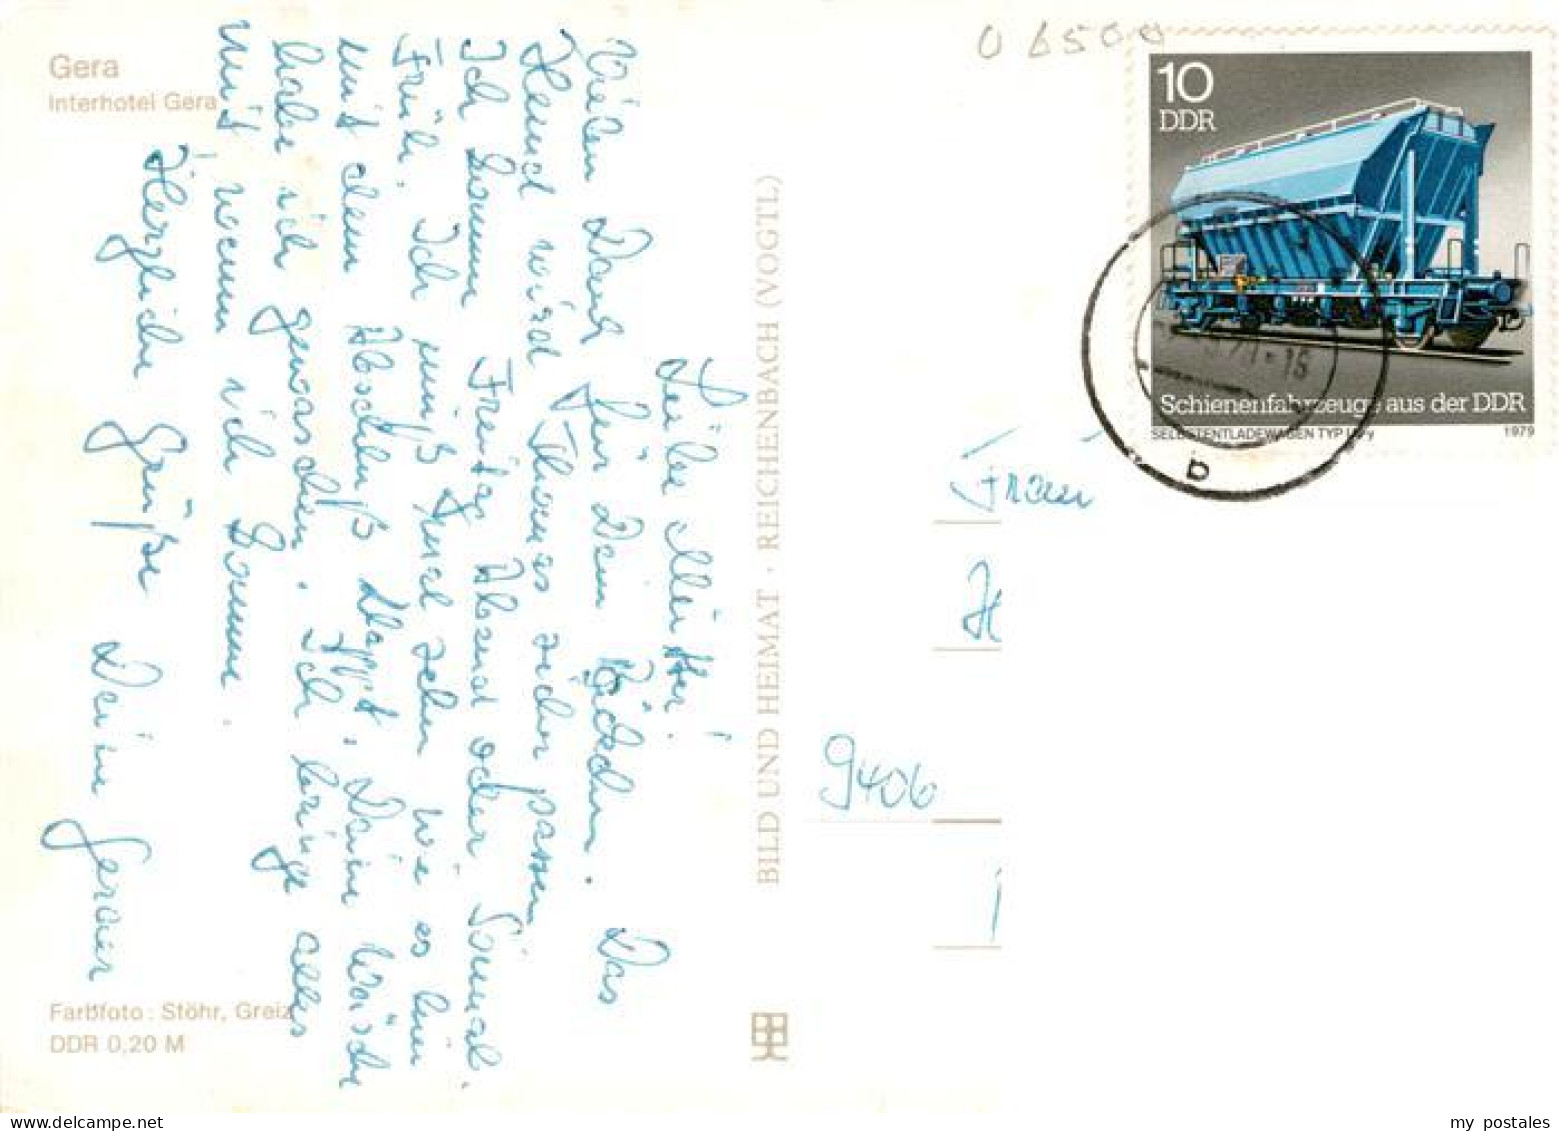 Gera
Interhotel Gera
Liebe Mutter!
Vielen Dank für Dein Päckchen. Das
Hemd wird Thomas sicher passen.
Ich komme Freitag Abend oder Sonnab.
Früh. Ich muß mal sehen wie es hier
mit dem Abschluß klappt. Deine Wäsche
habe ich gewaschen. Ich bringe alles
mit wenn ich komme.
Herzliche Grüße Deine
Farbfoto: Stöhr, Greiz
DDR 0,20 M
BILD UND HEIMAT · REICHENBACH (VOGTL)
06500
10
DDR
Schienenfahrzeuge aus der DDR
SELBSTENTLADEWAGEN TYP
1979
b
Frau
H
9406
my postales